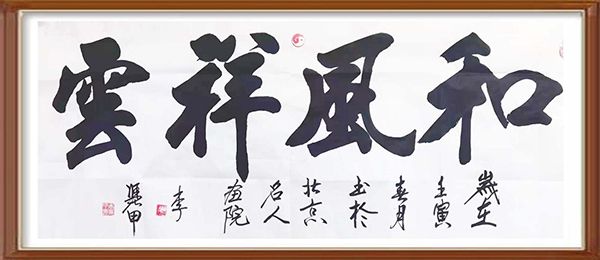 和風祥雲
歲在
壬寅
春月
书於
北京
名人
画院
李
甲